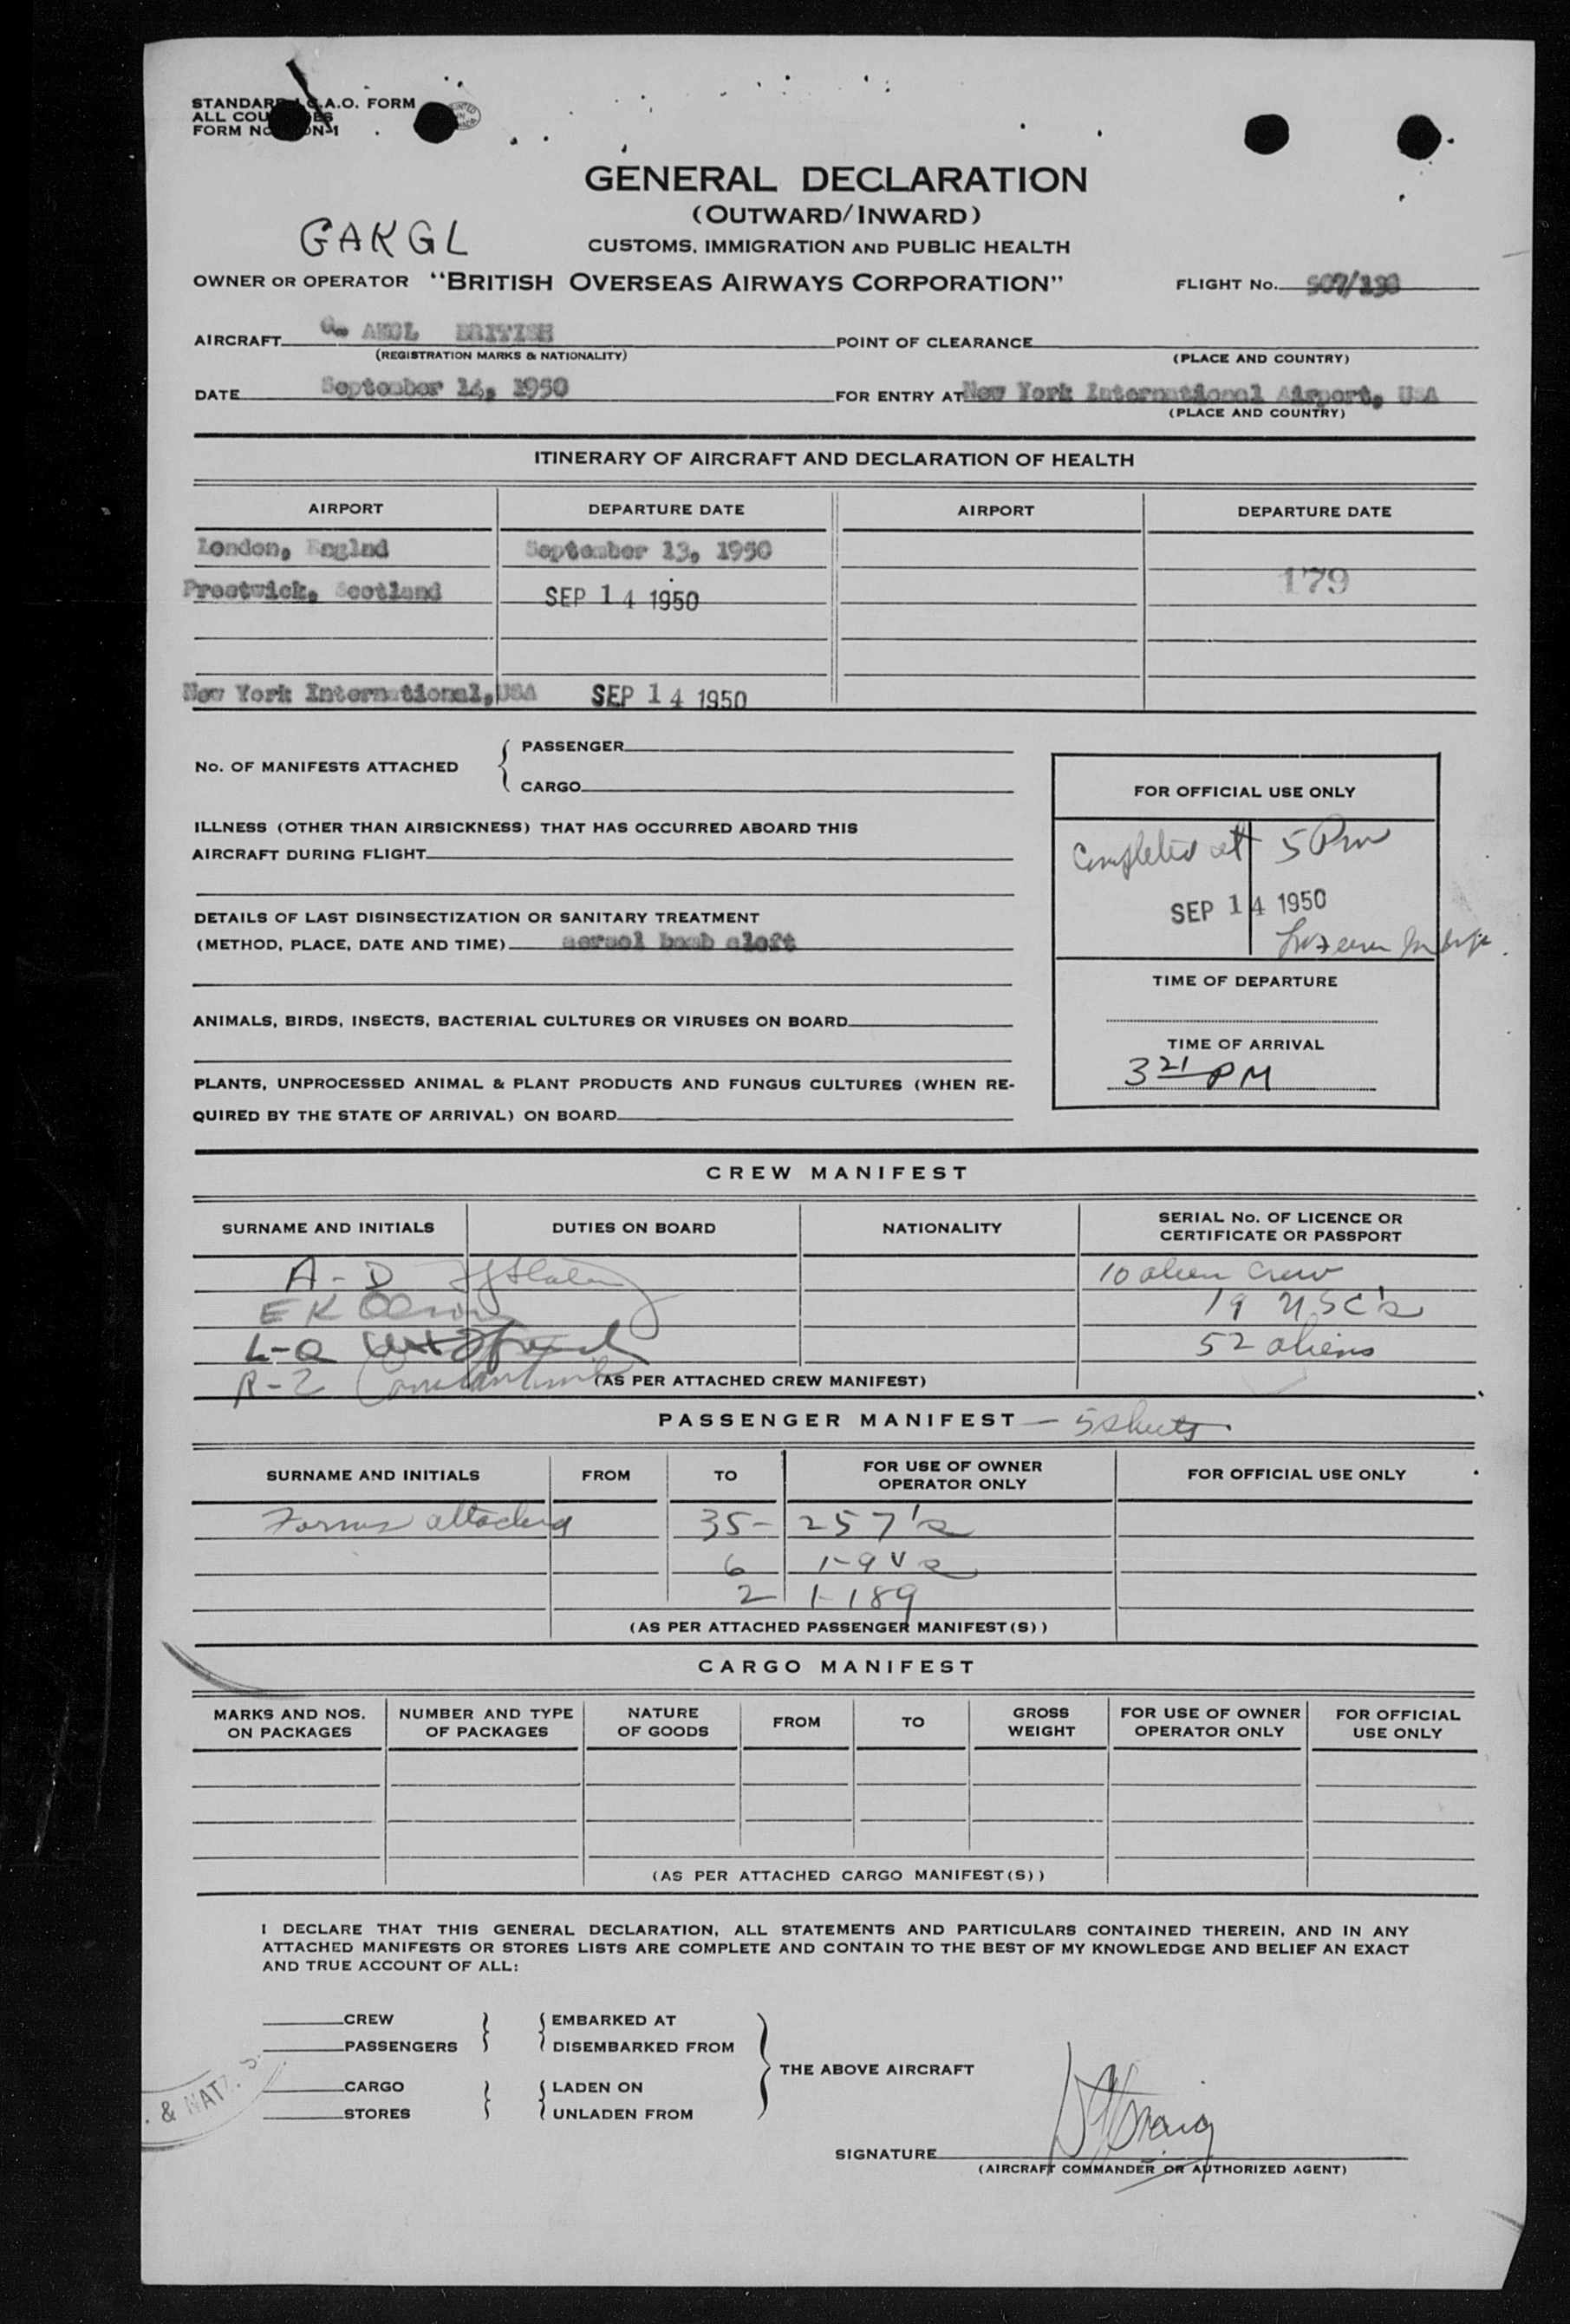 STANDARD I.C.A.O. FORM
ALL COU ES
FORM NO ON-1
GENERAL DECLARATION
(OUTWARD/INWARD)
GAKGL
CUSTOMS, IMMIGRATION AND PUBLIC HEALTH
OWNER OR OPERATOR "BRITISH OVERSEAS AIRWAYS CORPORATION"
FLIGHT No. 507/190
AIRCRAFT G- AKGL BRITISH
(REGISTRATION MARKS & NATIONALITY)
POINT OF CLEARANCE
(PLACE AND COUNTRY)
DATE September 14, 1950
FOR ENTRY AT New York International Airport, USA
(PLACE AND COUNTRY)
ITINERARY OF AIRCRAFT AND DECLARATION OF HEALTH
AIRPORT DEPARTURE DATE AIRPORT DEPARTURE DATE
London, Englnd September 13, 1950
179
Prestwick, Scotland SEP 14 1950
New York International, USA SEP 14 1950
No. OF MANIFESTS ATTACHED
PASSENGER
CARGO
ILLNESS (OTHER THAN AIRSICKNESS) THAT HAS OCCURRED ABOARD THIS
AIRCRAFT DURING FLIGHT
DETAILS OF LAST DISINSECTIZATION OR SANITARY TREATMENT
(METHOD, PLACE, DATE AND TIME) aersol bomb aloft
ANIMALS, BIRDS, INSECTS, BACTERIAL CULTURES OR VIRUSES ON BOARD
PLANTS, UNPROCESSED ANIMAL & PLANT PRODUCTS AND FUNGUS CULTURES (WHEN RE-
QUIRED BY THE STATE OF ARRIVAL) ON BOARD
FOR OFFICIAL USE ONLY
Completed at 5 Pm
SEP 14 1950
TIME OF DEPARTURE
TIME OF ARRIVAL
3 21 PM
CREW MANIFEST
SURNAME AND INITIALS DUTIES ON BOARD NATIONALITY SERIAL No. OF LICENCE OR
CERTIFICATE OR PASSPORT
A-D 10 alien Crew
E K 19 USC's
L-Q 52 aliens
R-Z
(AS PER ATTACHED CREW MANIFEST)
PASSENGER MANIFEST — 5 sheets
SURNAME AND INITIALS FROM TO FOR USE OF OWNER
OPERATOR ONLY
FOR OFFICIAL USE ONLY
Forms attached 35- 257's
6 1-94's
2 1-189
(AS PER ATTACHED PASSENGER MANIFEST(S))
CARGO MANIFEST
MARKS AND NOS.
ON PACKAGES
NUMBER AND TYPE
OF PACKAGES
NATURE
OF GOODS
FROM
TO
GROSS
WEIGHT
FOR USE OF OWNER
OPERATOR ONLY
FOR OFFICIAL
USE ONLY
(AS PER ATTACHED CARGO MANIFEST(S))
I DECLARE THAT THIS GENERAL DECLARATION, ALL STATEMENTS AND PARTICULARS CONTAINED THEREIN, AND IN ANY
ATTACHED MANIFESTS OR STORES LISTS ARE COMPLETE AND CONTAIN TO THE BEST OF MY KNOWLEDGE AND BELIEF AN EXACT
AND TRUE ACCOUNT OF ALL:
CREW
PASSENGERS
EMBARKED AT
DISEMBARKED FROM
THE ABOVE AIRCRAFT
CARGO
STORES
LADEN ON
UNLADEN FROM
. & NATZ. S.
SIGNATURE
(AIRCRAFT COMMANDER OR AUTHORIZED AGENT)